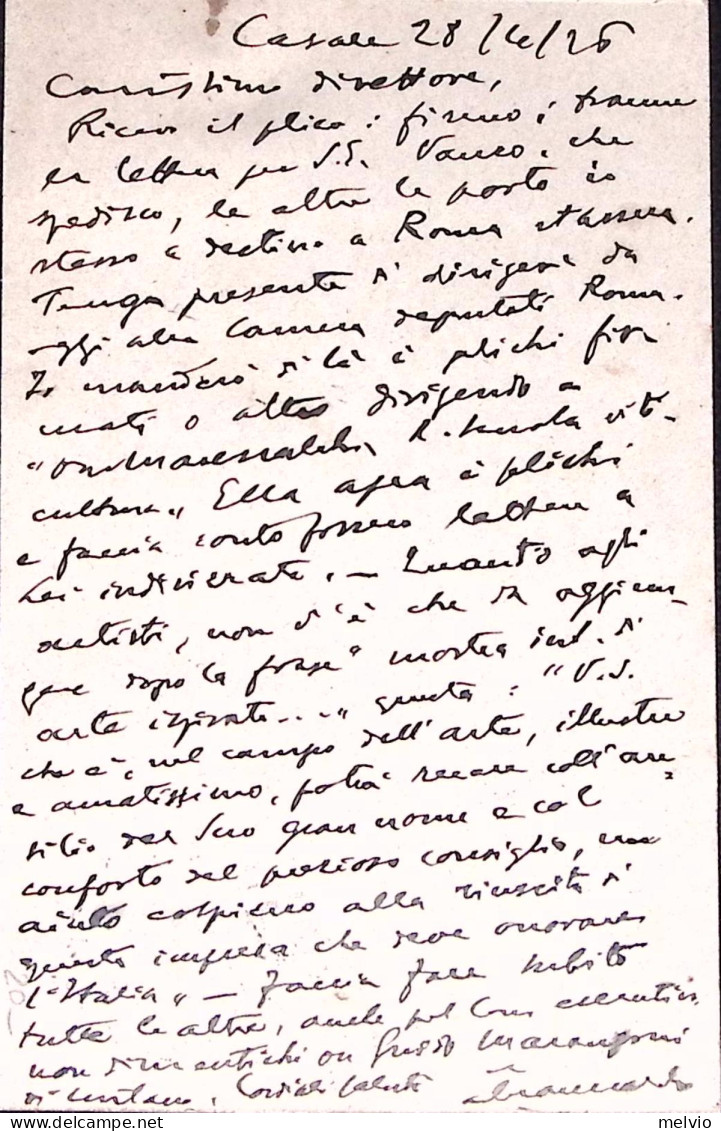 Casale 28/4/26
Carissimo direttore,
Ricevo il plico: firmo, tranne
la lettera per S.E. che
spedisco, le altre le porto io
stesso a destino a Roma stassera.
Tenga presente di dirigere da
oggi alla Camera deputati Roma.
Io manderò di là i plichi fir
mati o altro dirigendo a
"On. R. Scuola viti-
cultura" Ella apra i plichi
e faccia conto fossero lettere a
Lei indirizzate. — Quanto agli
artisti, non c'è che da aggiun-
gere dopo la frase "mostra int. di
arte ispirata...." questa: "V.S.
che è, nel campo dell'arte, illustre
e amatissimo, potrà recare coll'au
silio del Suo gran nome e col
conforto del prezioso consiglio, un
aiuto cospicuo alla riuscita di
questa impresa che deve onorare
l'Italia" — Faccia fare subito
tutte le altre, anche pel Com. esecutivo
non dimentichi on Guido Marangoni
di Milano. Cordiali saluti
20-
melvio